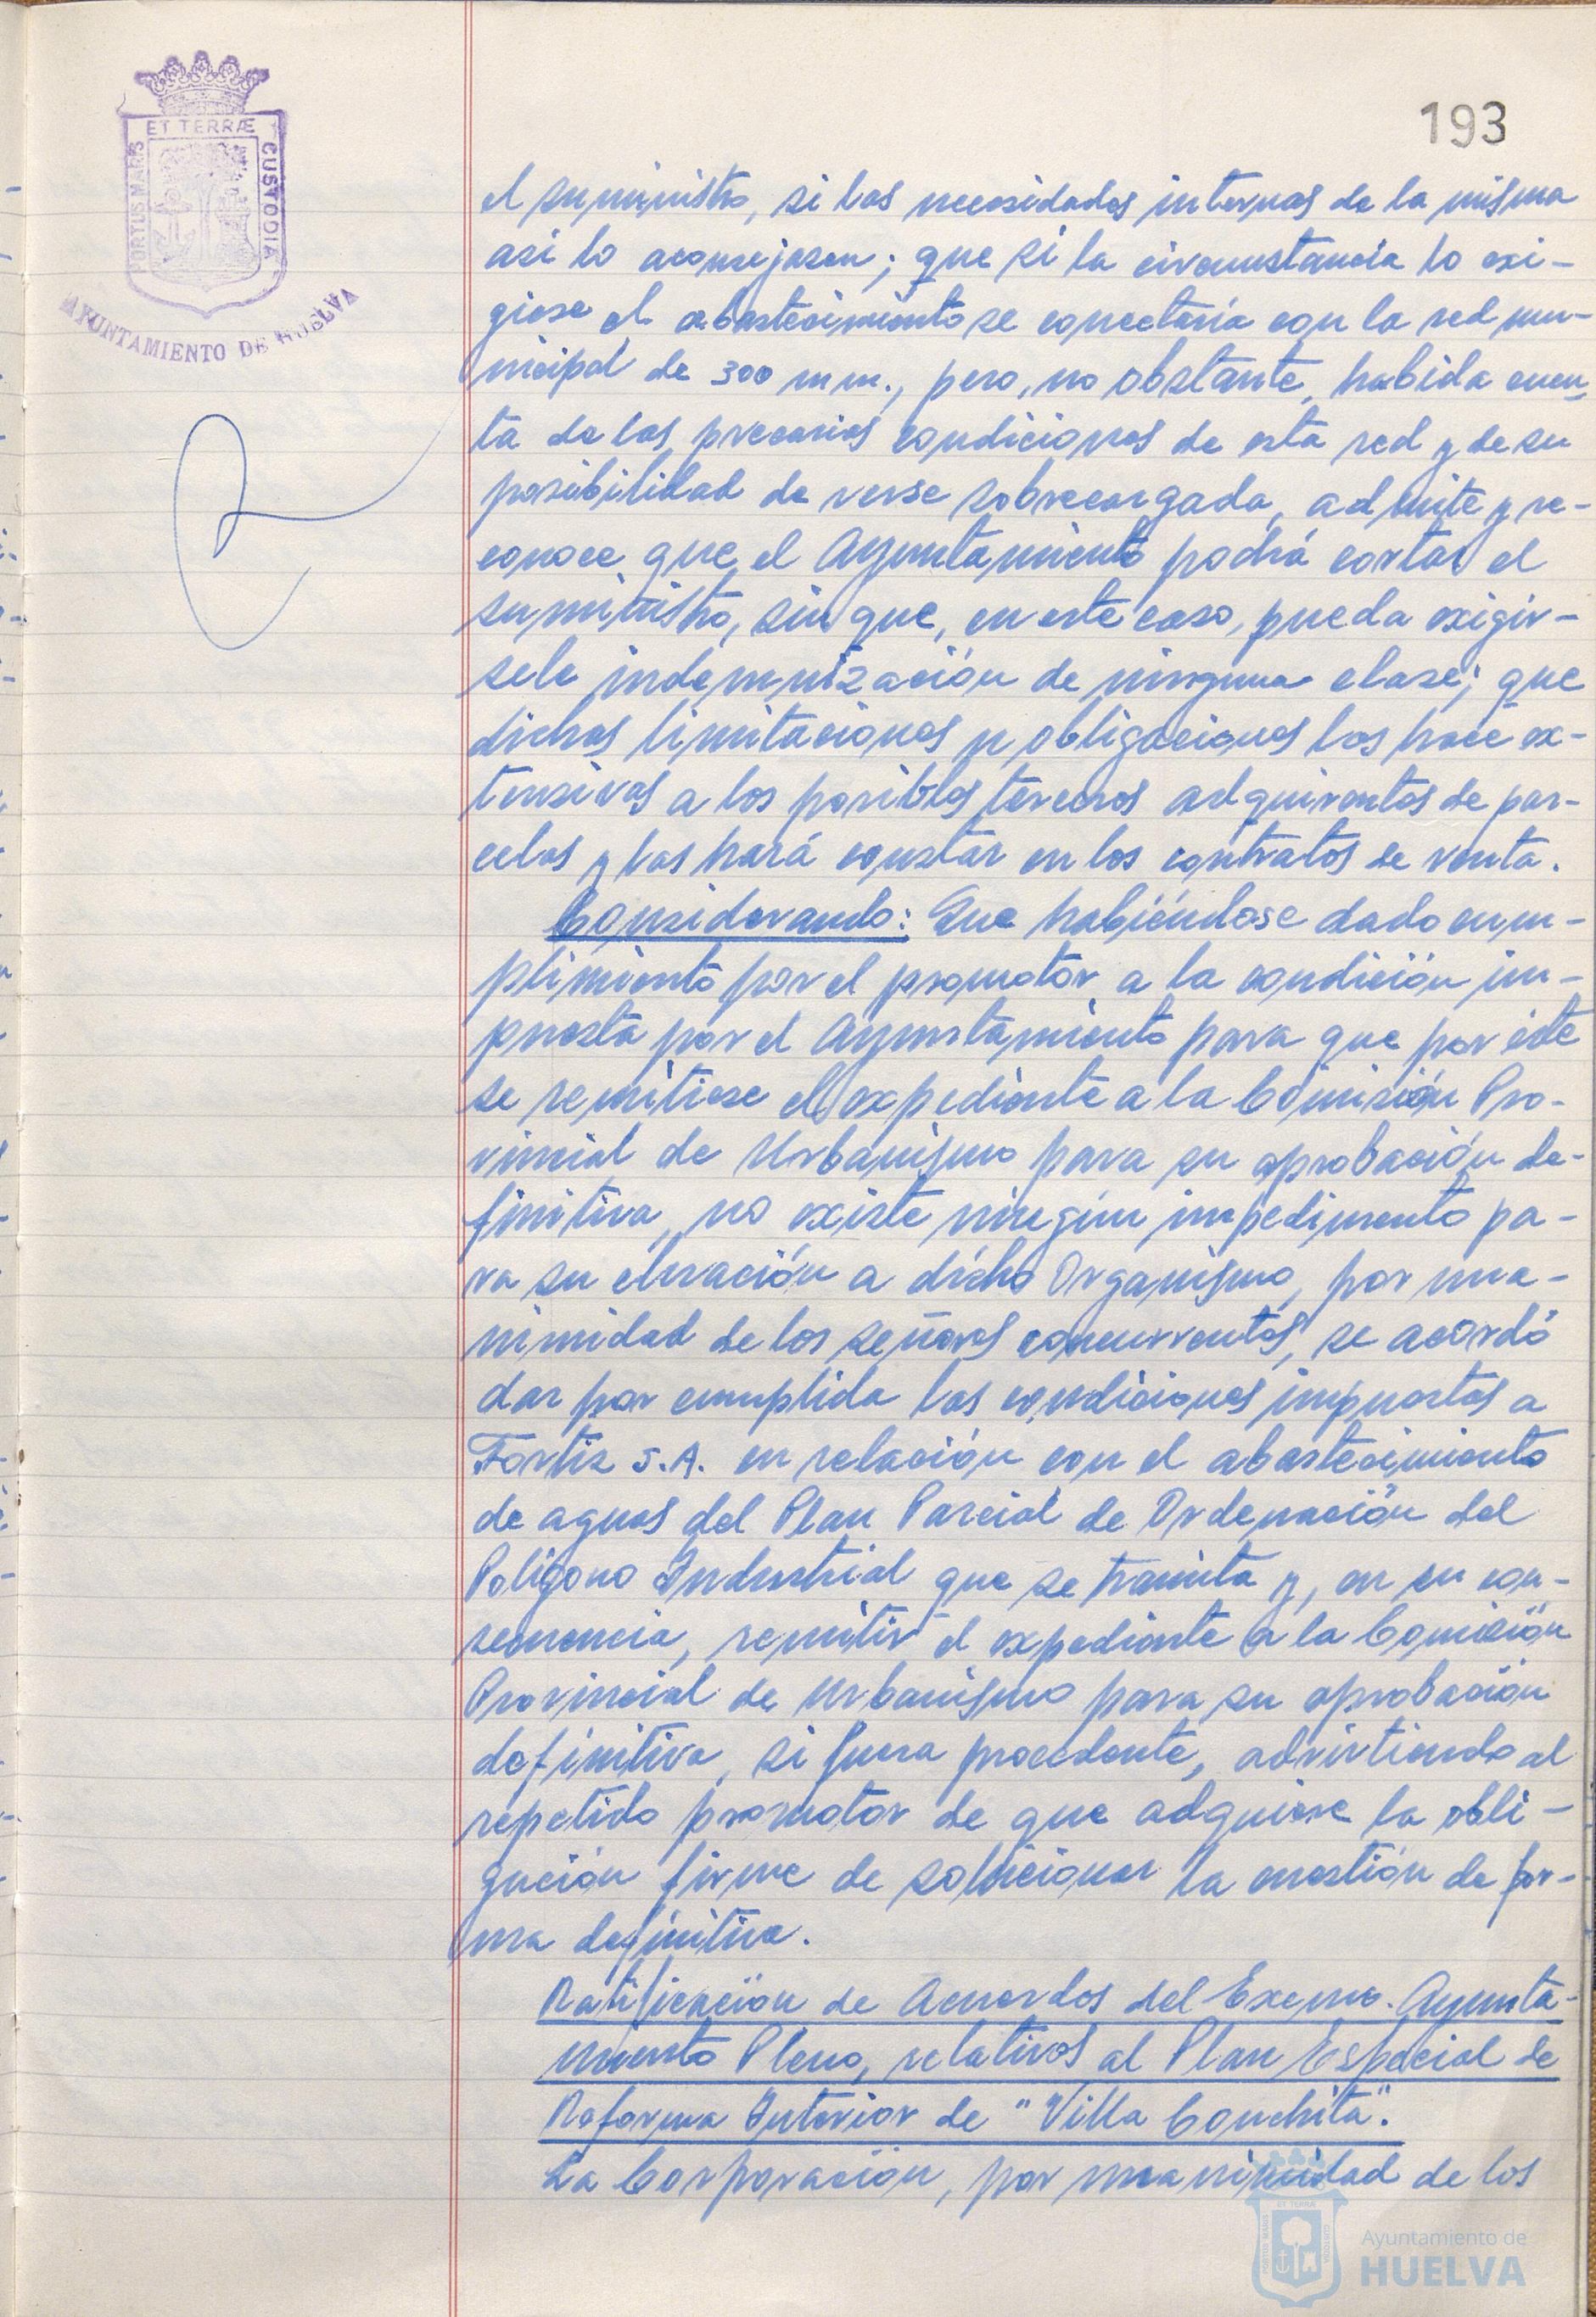 193
PORTUS MARIS
ET TERRÆ
CUSTODIA
AYUNTAMIENTO DE HUELVA
el suministro, si las necesidades internas de la misma
asi lo aconsejasen; que si la circunstancia lo exi-
giese el abastecimiento se conectaría con la red mu-
nicipal de 300 mm., pero, no obstante, habida cuen
ta de las precarias condiciones de esta red y de su
posibilidad de verse sobrecargada, admite y re-
conoce que el Ayuntamiento podrá cortar el
suministro, sin que, en este caso, pueda exigir-
sele indemnización de ninguna clase; que
dichas limitaciones y obligaciones las hace ex-
tensivas a los posibles terceros adquirentes de par-
celas y las hará constar en los contratos de venta.
Considerando: Que habiéndose dado cum-
plimiento por el promotor a la condición im-
puesta por el Ayuntamiento para que por éste
se remitiese el expediente a la Comisión Pro-
vincial de Urbanismo para su aprobación de-
finitiva, no existe ningún impedimento pa-
ra su elevación a dicho Organismo, por una-
nimidad de los señores concurrentes, se acordó
dar por cumplida las condiciones impuestas a
Fortiz S.A. en relación con el abastecimiento
de aguas del Plan Parcial de Ordenación del
Poligono Industrial que se tramita y, en su con-
secuencia, remitir el expediente a la Comisión
Provincial de Urbanismo para su aprobación
definitiva, si fuera procedente, advirtiendo al
repetido promotor de que adquiere la obli-
gación firme de solucionar la cuestión de for-
ma definitiva.
Ratificación de Acuerdos del Excmo. Ayunta-
miento Pleno, relativos al Plan Especial de
Reforma Interior de "Villa Conchita".
La Corporación, por unanimidad de los
Ayuntamiento de
HUELVA